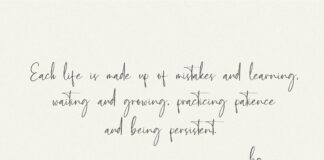 Each life is made up of mistakes and learning,
waiting and growing, practicing patience
and being persistent.